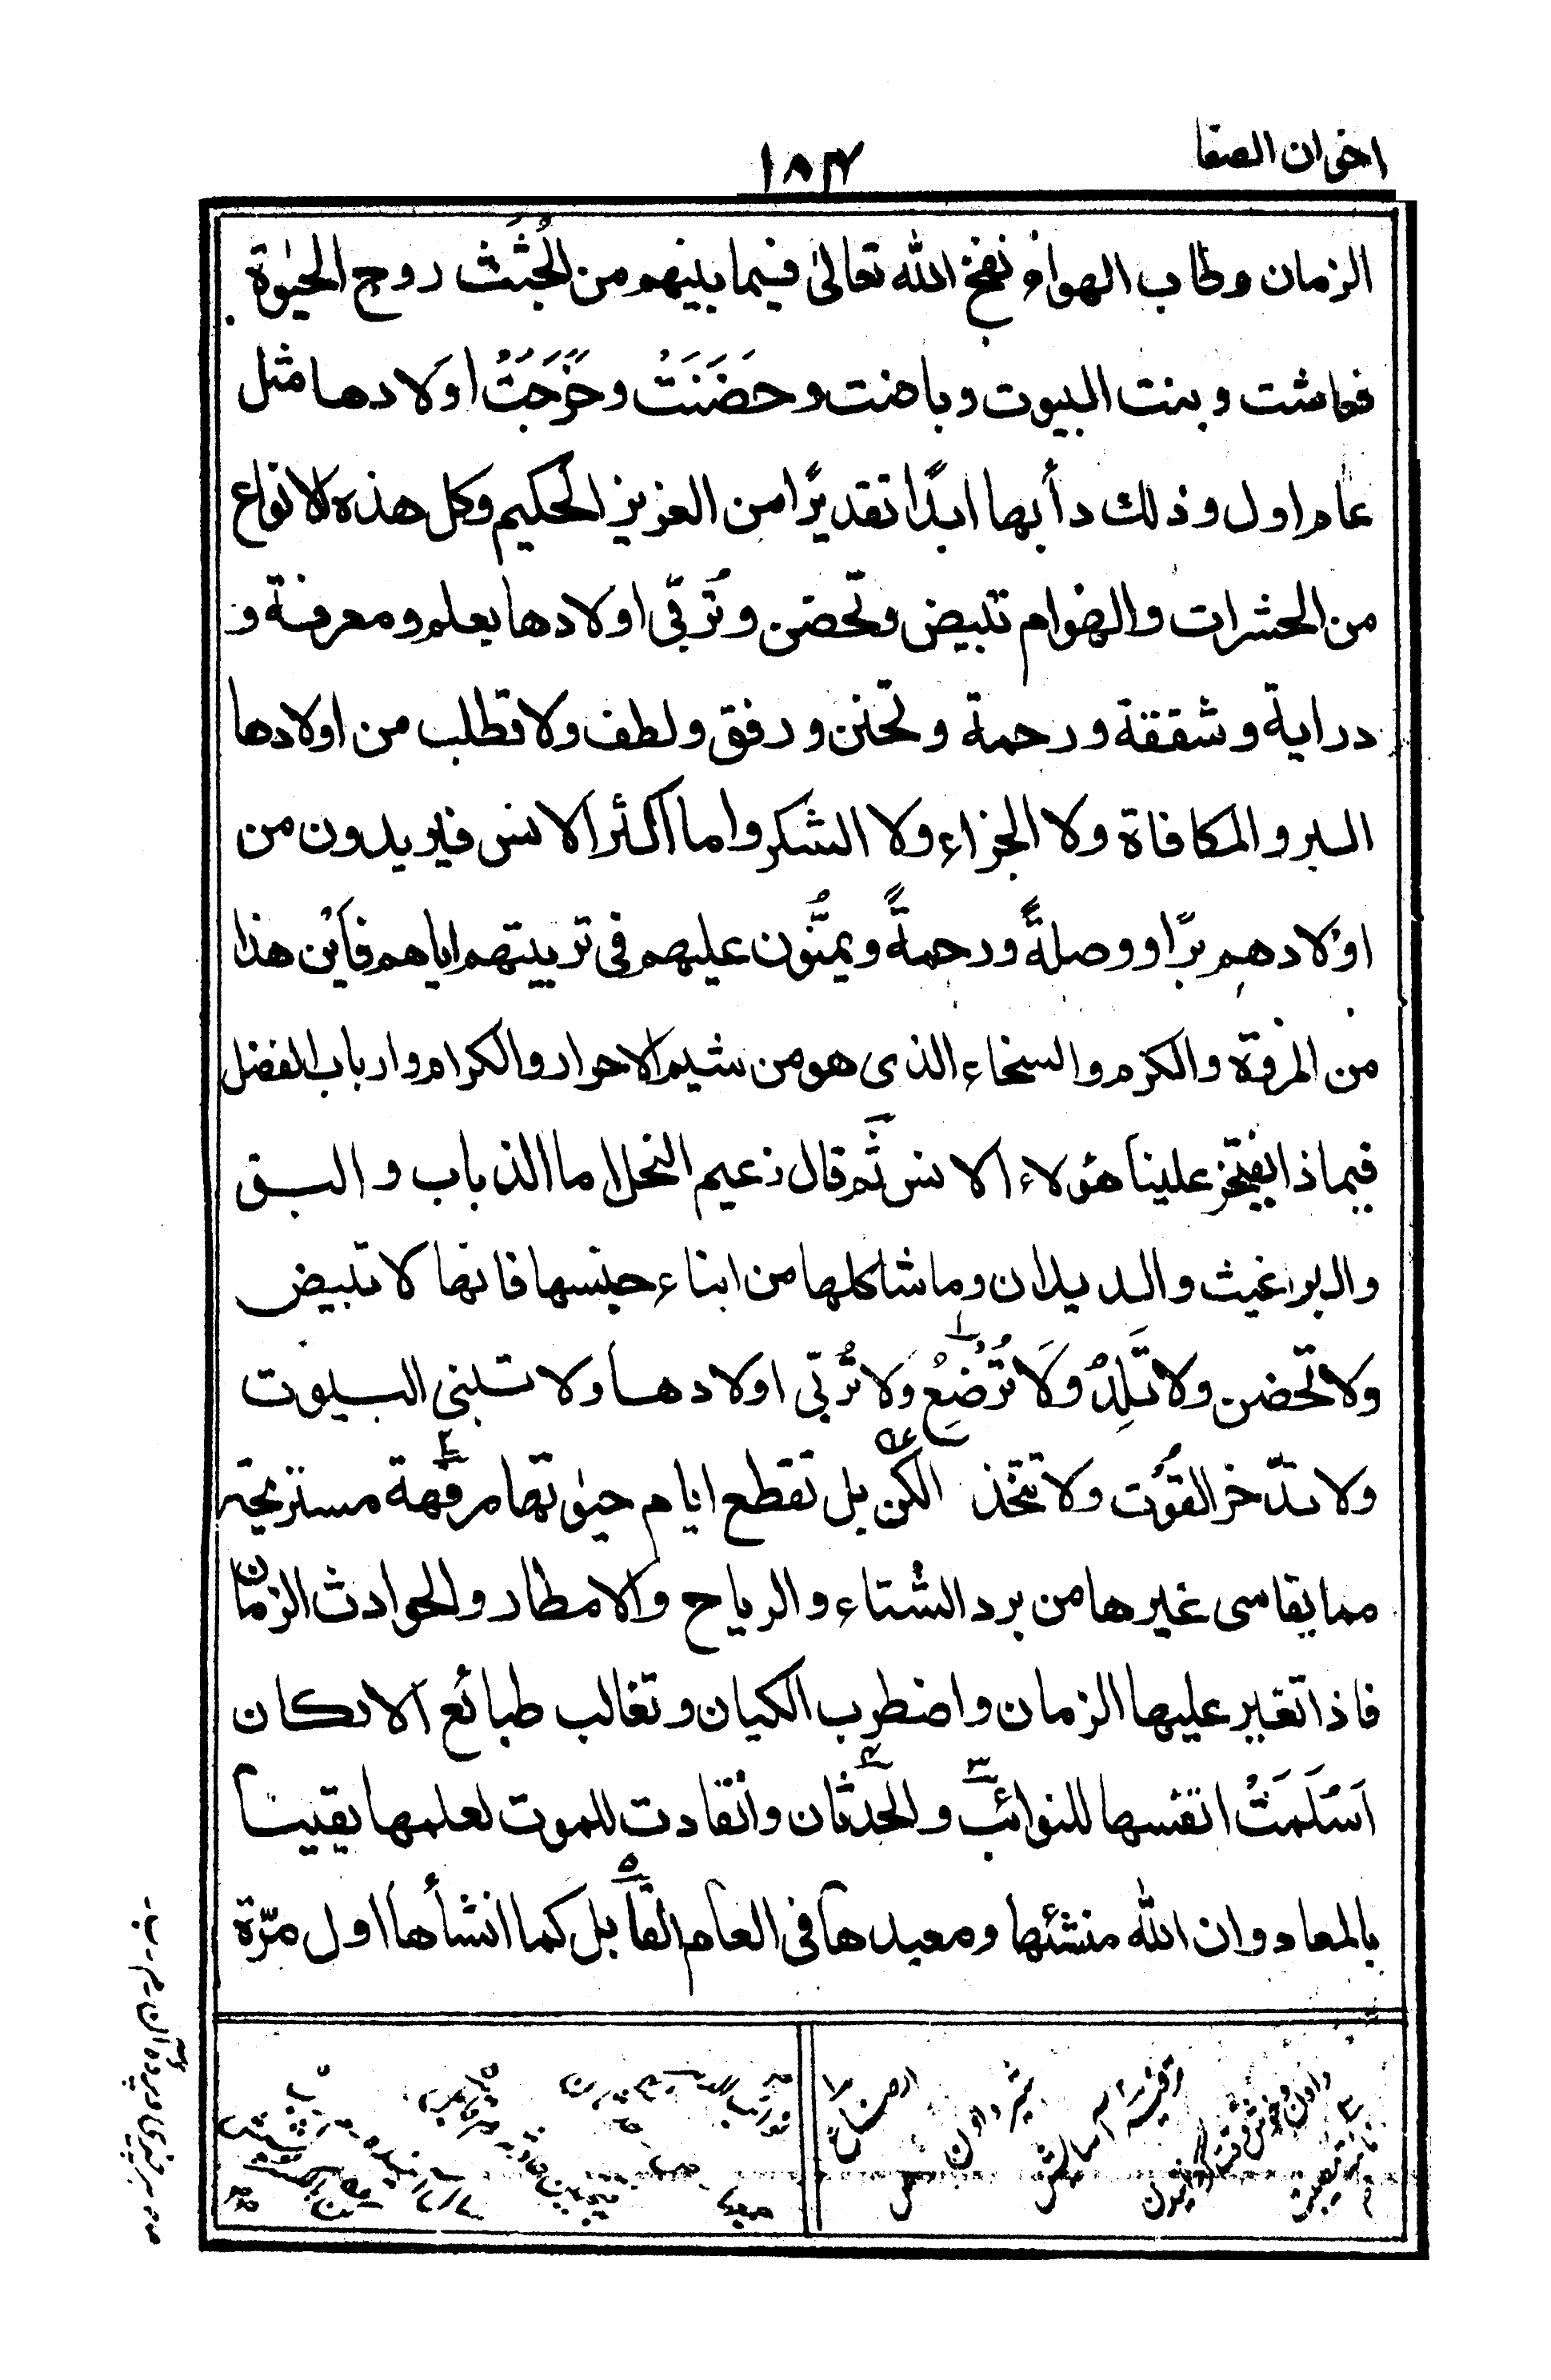 اخوان الصفا
١٨٣
الزمان وطاب الهواء نفخ الله تعالىٰ فيما بينهم من الجُثَث روح الحيٰوة
فعاشت وبنت البيوت وباضت وحَضَنَتْ وخَرَّجَتْ اولادها مثل
عام اول وذلك دأبها ابدًا تقديرًا من العزيز الحكيم وكل هذه الانواع
من الحشرات والهوام تبيض وتحضن وتُربّى اولادها بعلم ومعرفة و
دراية وشفقة ورحمة وتحنن ورفق ولطف ولا تطلب من اولادها
البر والمكافاة ولا الجزاء ولا الشكر واما اكثر الانس فيريدون من
اولادهم برّا ووصلةً ورحمةً ويمُنُّون عليهم فى تربيتهم اياهم فأين هذا
من المروة والكرم والسخاء الذى هو من شيم الاحرار والكرام وارباب الفضل
فيما ذا يفتخر علينا هؤلاء الانس ثَم قال زعيم النحل اما الذباب و البق
والبراغيث والديدان وما شاكلها من ابناء جنسها فانها لا تبيض
ولا تحضن ولا تَلِدُ ولَا تُرْضِعُ ولا تُربّى اولادها ولا تبنى البيوت
ولا تدّخر القُوْت ولا تتخذ الكن بل تقطع ايام حيٰوتها مرفهة مستريحة
مما يقاسى غيرها من برد الشتاء والرياح والامطار والحوادث الزمان
فاذا تغير عليها الزمان واضطرب الكيان وتغالب طبائع الاركان
اَسْلَمَتْ انفسها للنوائب والحدثان وانقادت للموت لعلمها يقينا
بالمعاد وان الله منشئها ومعيدها فى العام القابل كما انشأها اول مرّة